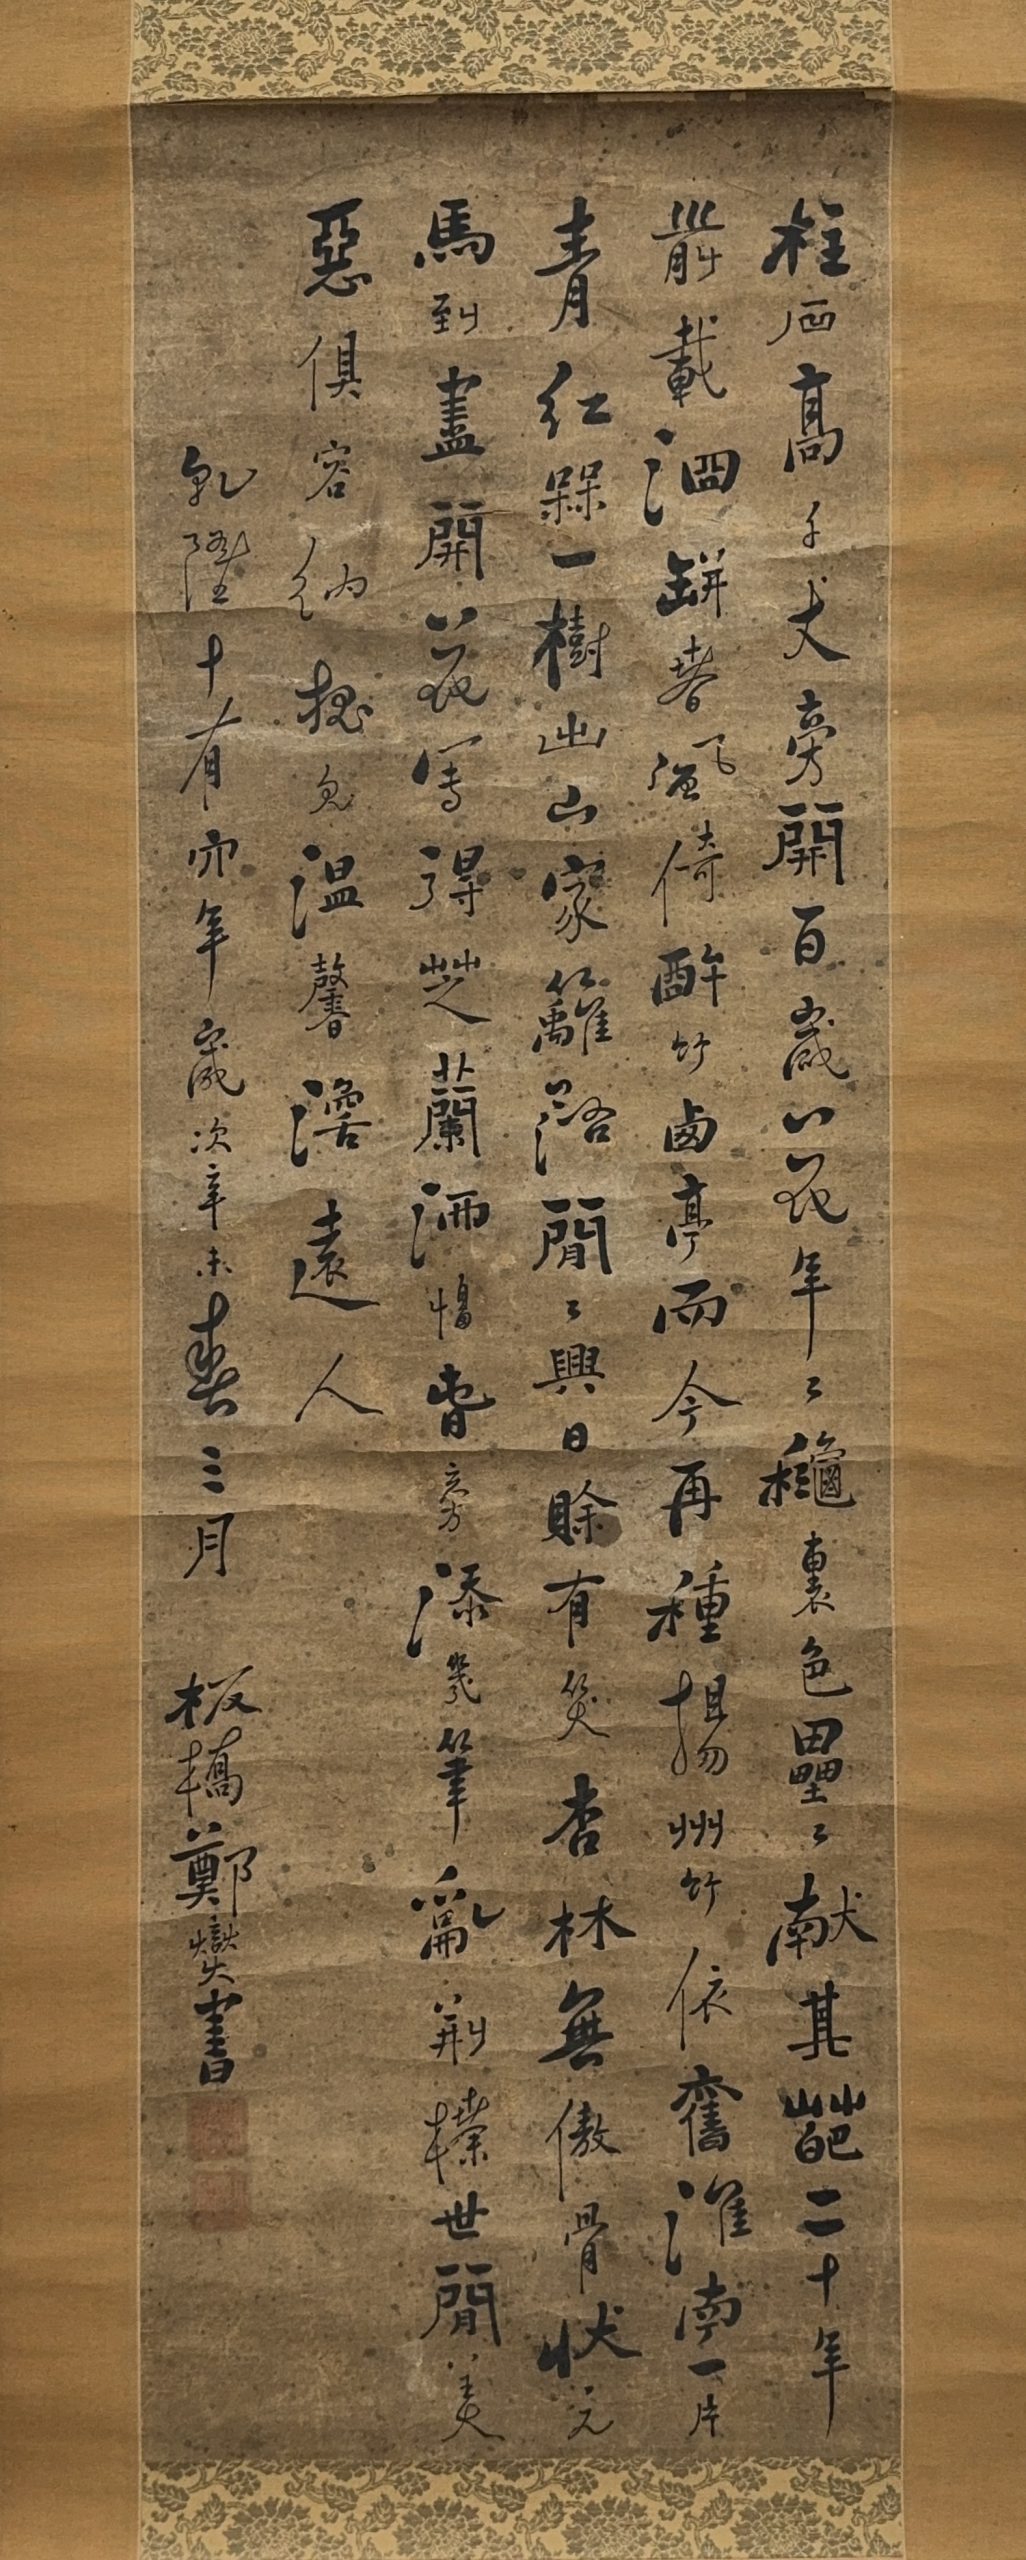 柱石高千丈旁開百歲花年〻穐裏色壘〻獻其葩二十年
前載酒缾春風倚醉竹西亭而今再種揚州竹依舊淮南一片
青紅槑一樹出山家籬落閒〻興日賒有笑杏林無傲骨狀元
馬到盡開花寫得芝蘭滿幅香旁添幾筆亂荊榛世間美
惡俱容納想見溫馨澹遠人
乾隆十有六年歲次辛未春三月 板橋鄭燮書